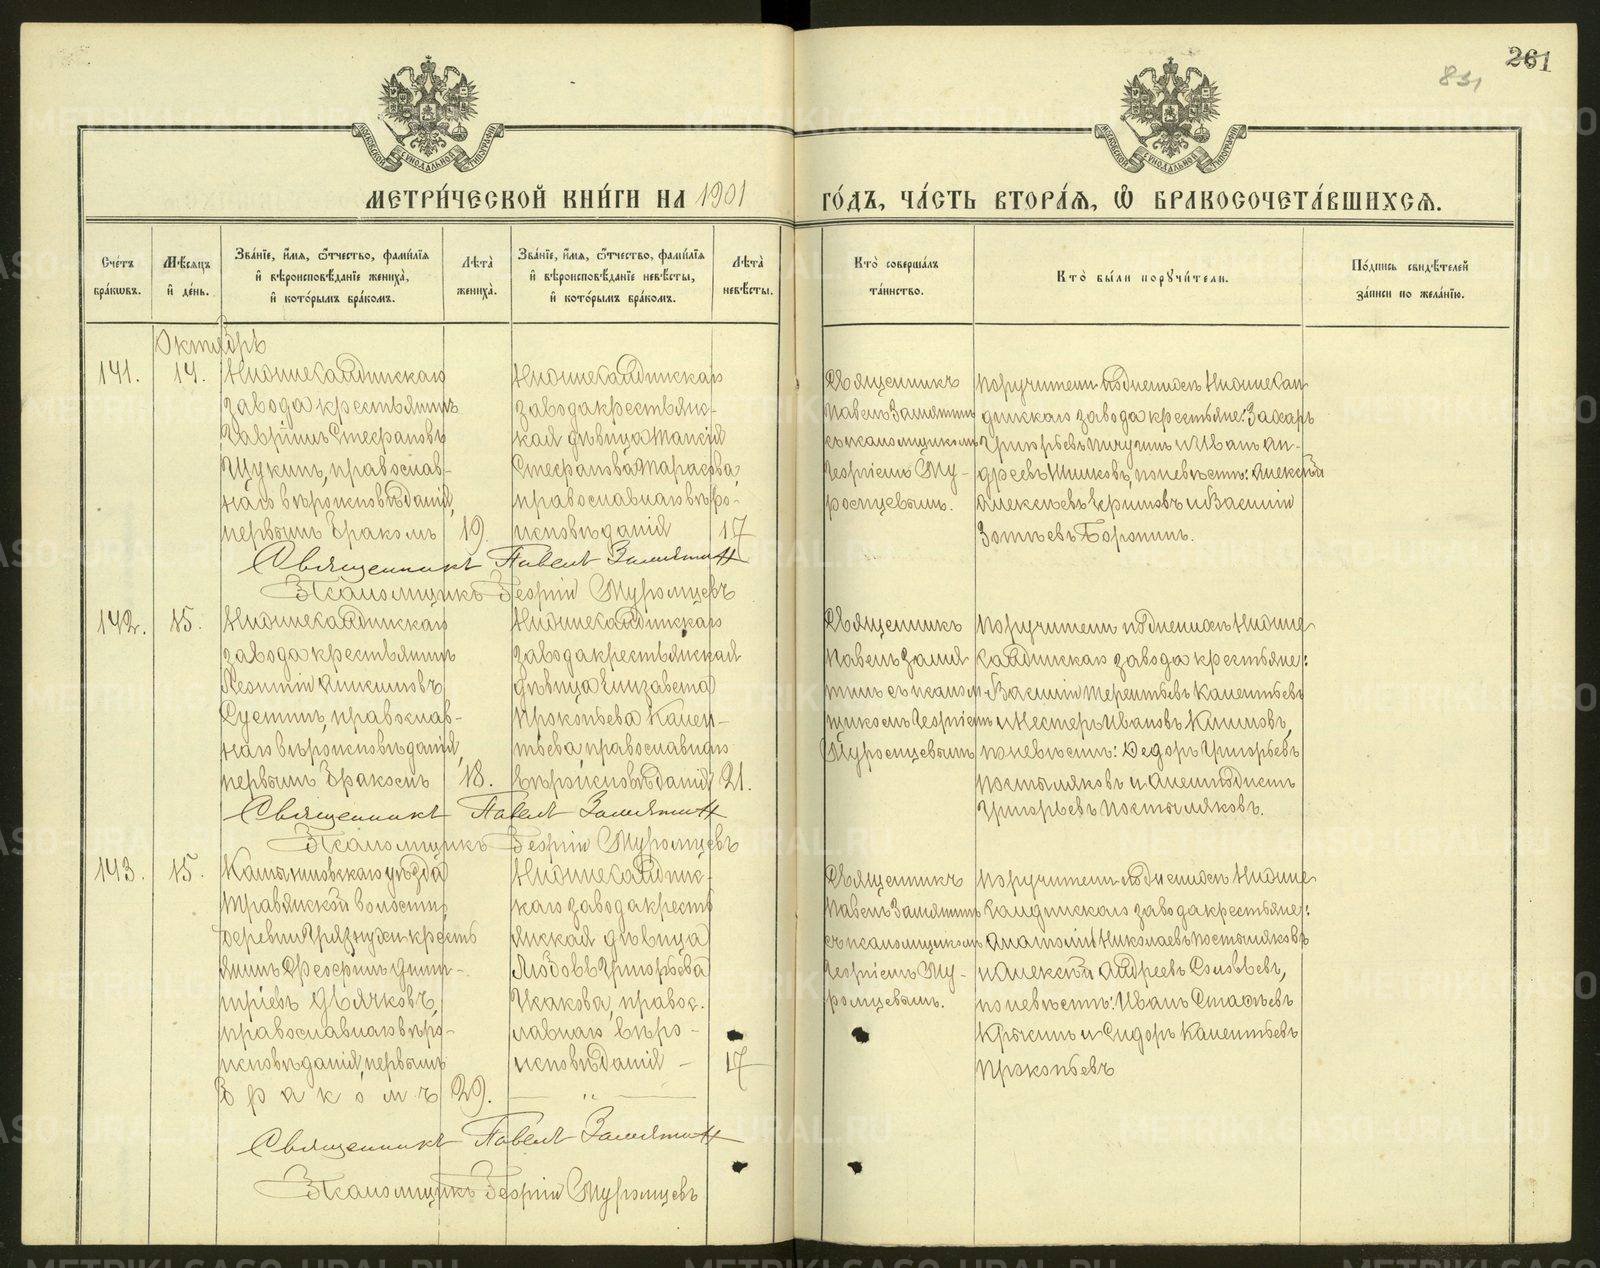 261
831
МЕТРИ́ЧЕСКОЙ КНИ́ГИ НА 1901 ГО́ДЪ, ЧА́СТЬ ВТОРА́Ѧ, Ѽ БРАКОСОЧЕТА́ВШИХСѦ.
Сче́тъ бра́кѡвъ.
Мѣ́сѧцъ и҆ де́нь.
Зва́нїе, и҆́мѧ, ѻ҆́тчество, фами́лїѧ
и҆ вѣроисповѣ́данїе жениха̀,
и҆ кото́рымъ бра́комъ.
Лѣ́та̀ жениха̀.
Зва́нїе, и҆́мѧ, ѻ҆́тчество, фами́лїѧ
и҆ вѣроисповѣ́данїе невѣ́сты,
и҆ кото́рымъ бра́комъ.
Лѣ́та̀ невѣ́сты.
Кто̀ соверша́лъ та́инство.
Кто̀ бы́ли поручи́тели.
По́дпись свидѣ́телей
за́писи по жела́нїю.
Октябрь
141.
14.
Нижнесалдинскаго
завода крестьянинъ
Гавріилъ Стефановъ
Щукинъ, православ-
наго вѣроисповѣданія,
первымъ бракомъ
19.
Нижнесалдинскаго
завода крестьянс-
кая дѣвица Таисія
Стефанова Тарасова,
православнаго вѣро-
исповѣданія
17
Священникъ
Павелъ Замятинъ
съ псаломщикомъ
Георгіемъ Му-
ромцевымъ.
Поручители по женихѣ Нижнесал
динскаго завода крестьяне: Захаръ
Григорьевъ Пичугинъ и Иванъ Ан-
дреевъ Шишковъ, по невѣстѣ: Алексѣй
Алексѣевъ и Василій
Зотѣевъ Боронинъ.
Священникъ Павелъ Замятинъ
Псаломщикъ Георгій Муромцевъ
142.
15.
Нижнесалдинскаго
завода крестьянинъ
Леонтій Анкимовъ
Сустинъ, православ-
наго вѣроисповѣданія,
первымъ бракомъ
18.
Нижнесалдинскаго
завода крестьянская
дѣвица Елизавета
Прокопьева Кален-
тьева православнаго
вѣроисповѣданія
21.
Священникъ
Павелъ Замя
тинъ съ псалом
щикомъ Георгіемъ
Муромцевымъ
Поручители по женихѣ Нижне
салдинскаго завода крестьяне:
Василій Терентьевъ Калентьевъ
и Нестеръ Ивановъ Климовъ,
по невѣстѣ: Федоръ Григорьевъ
Постыляковъ и
Григорьевъ Постыляковъ.
Священникъ Павелъ Замятинъ
Псаломщикъ Георгій Муромцевъ
143.
15.
Камышловскаго уѣзда
Травянской волости,
деревни Грязнухи кресть
янинъ Феофилъ Дмит-
ріевъ Дьячковъ,
православнаго вѣро-
исповѣданія, первымъ
бракомъ
29.
Нижнесалдинс-
каго завода кресть
янская дѣвица
Любовь Григорьева
Жакова, правос-
лавнаго вѣро-
исповѣданія –
17
Священникъ
Павелъ Замятинъ
съ псаломщикомъ
Георгіемъ Му-
ромцевымъ.
Поручители по женихѣ Нижне
салдинскаго завода крестьяне:
Анатолій Николаевъ Постыляковъ
и Алексѣй Андреевъ Соловьевъ,
по невѣстѣ: Иванъ
и Сидоръ Калентьевъ
Прокопьевъ
Священникъ Павелъ Замятинъ
Псаломщикъ Георгій Муромцевъ